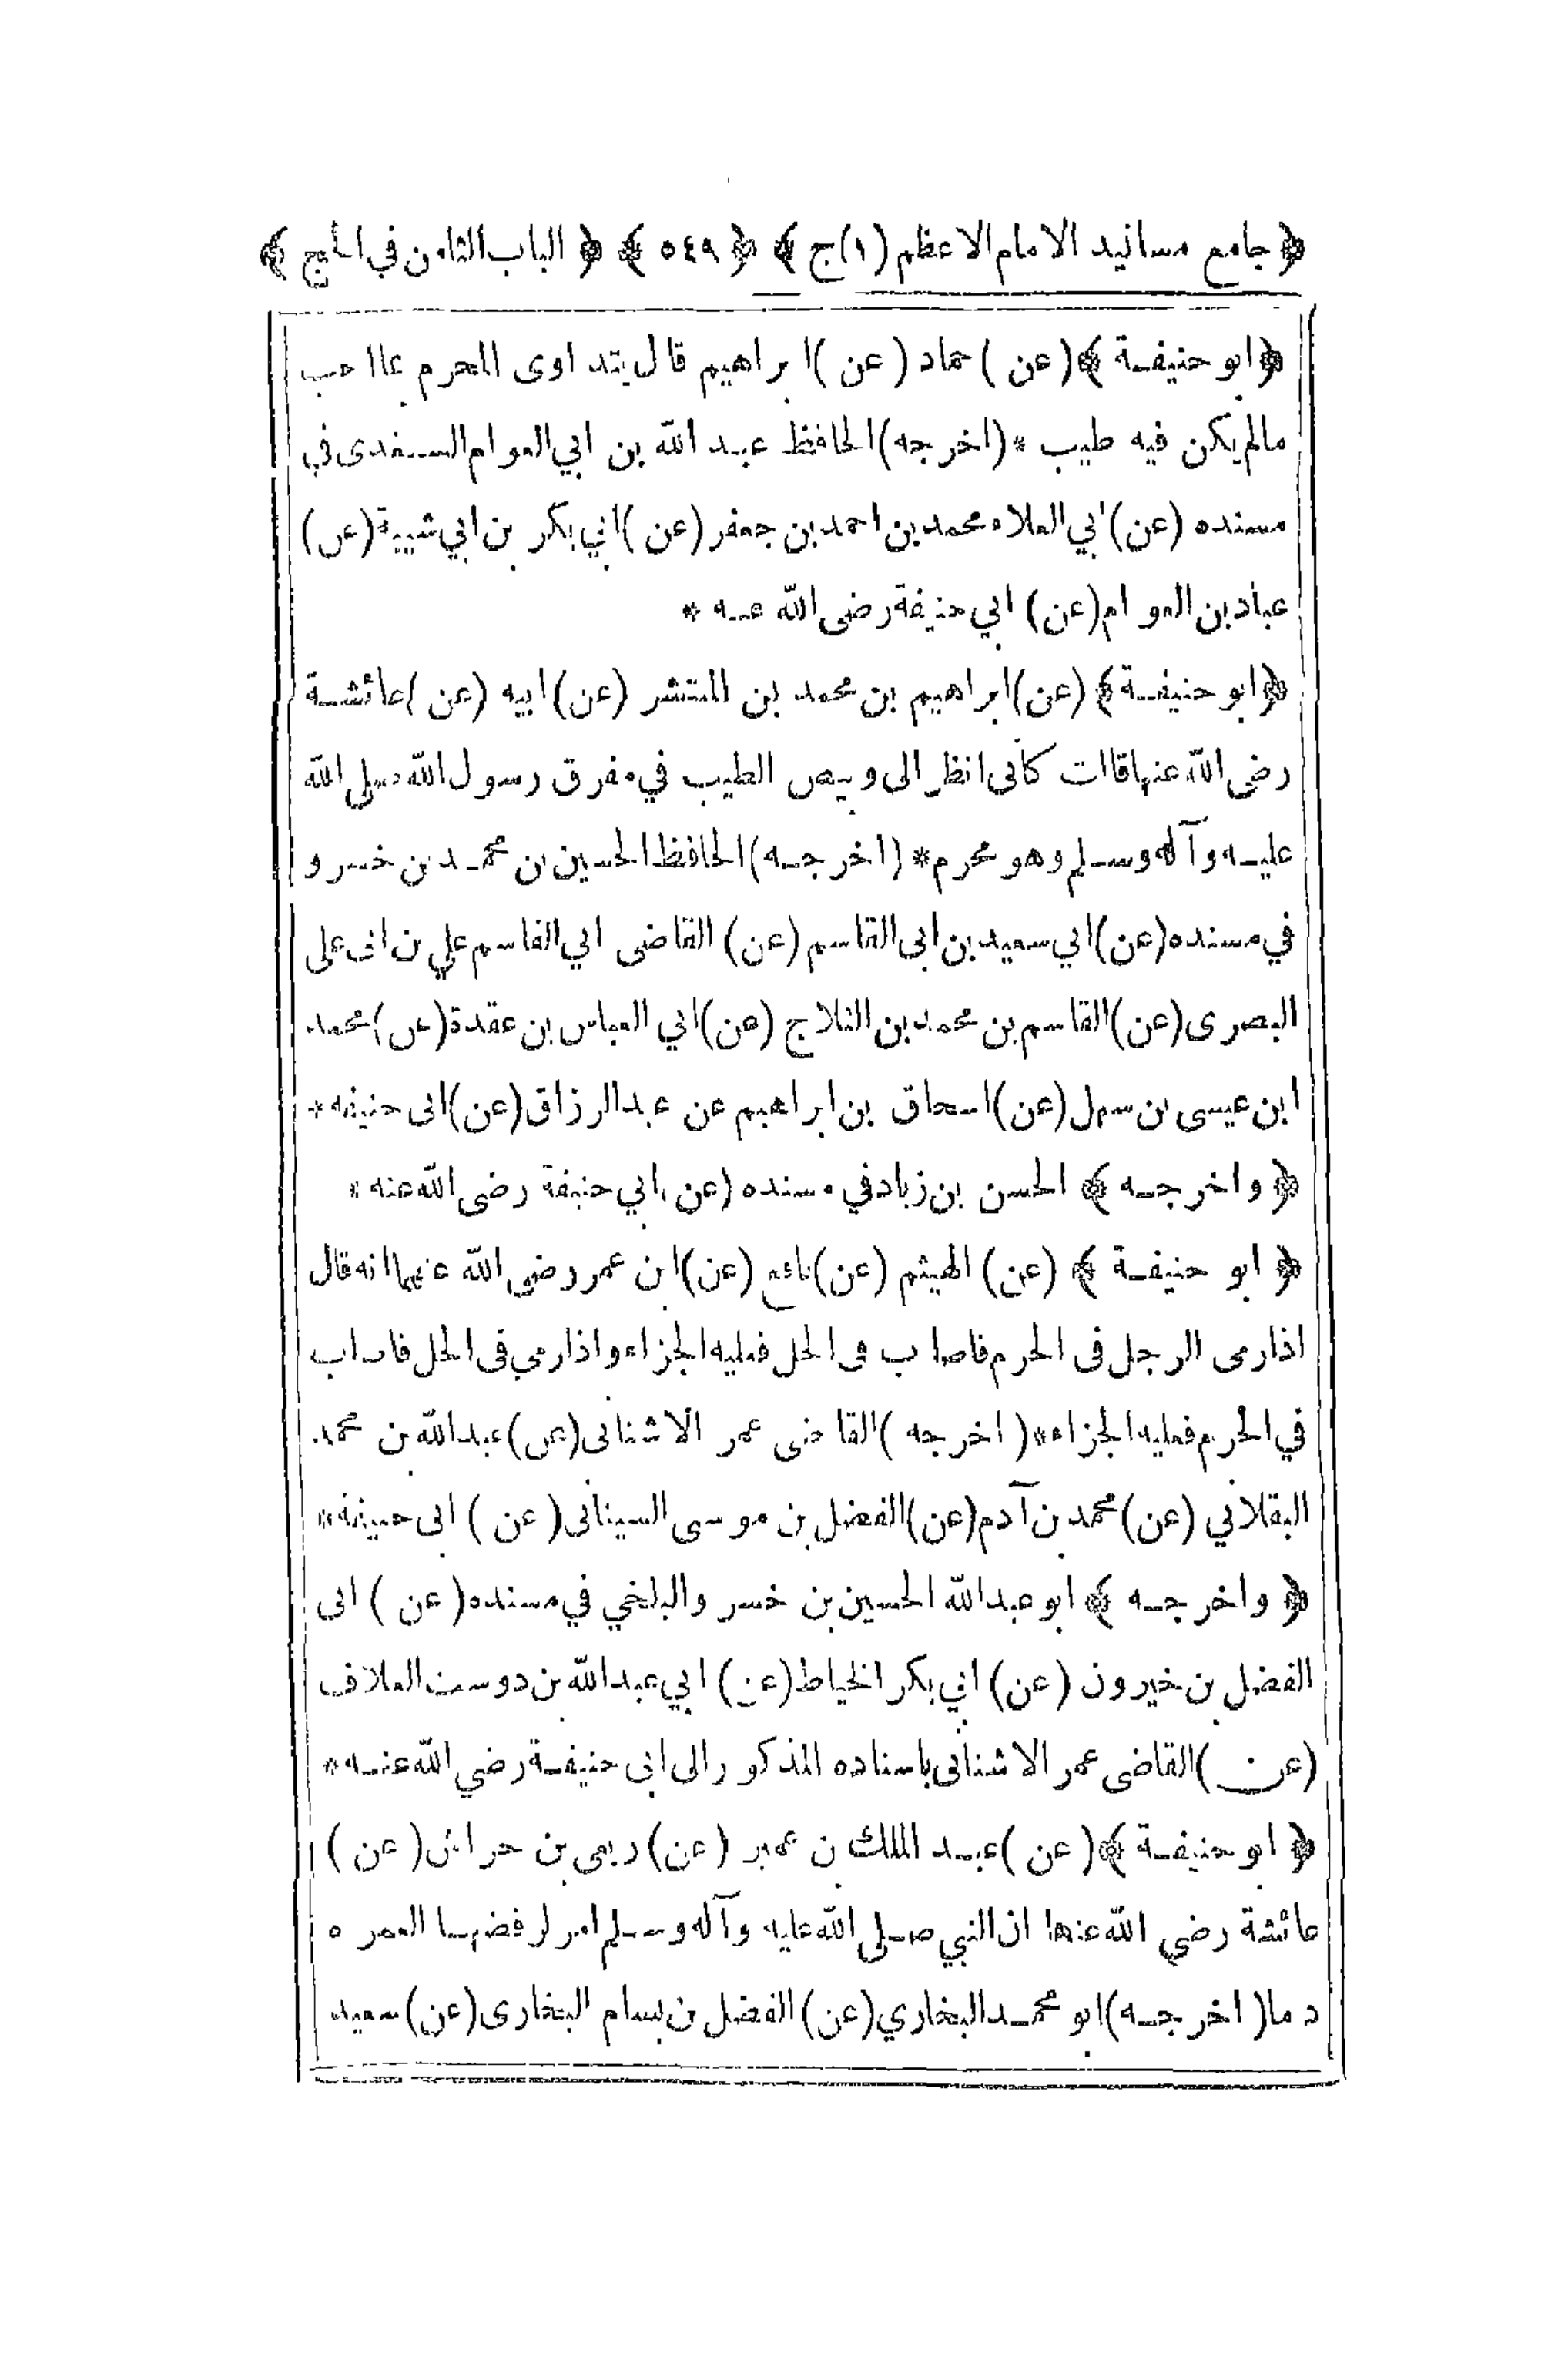 ﴿جامع مسانيد الامام الاعظم (١)ج﴾ ﴿٥٤٩﴾ ﴿الباب الثامن في الحج﴾
﴿ابو حنيفة﴾ (عن) حماد (عن) ابراهيم قال يتداوى المحرم بما احب
مالم يكن فيه طيب * (اخرجه) الحافظ عبد الله بن ابي العوام السغدى في
مسنده (عن) ابي العلاء محمد بن احمد بن جعفر (عن) ابي بكر بن ابي شيبة (عن)
عباد بن العوام (عن) ابي حنيفة رضى الله عنه *
﴿ابو حنيفة﴾ (عن) ابراهيم بن محمد بن المنتشر (عن) ابيه (عن) عائشة
رضى الله عنها قالت كأنى انظر الى وبيص الطيب في مفرق رسول الله صلى الله
عليه وآله وسلم وهو محرم * (اخرجه) الحافظ الحسين بن محمد بن خسرو
في مسنده (عن) ابي سعيد بن ابى القاسم (عن) القاضى ابي القاسم علي بن ابى على
البصرى (عن) القاسم بن محمد بن الثلاج (عن) ابي العباس بن عقدة (عن) محمد
ابن عيسى بن سهل (عن) اسحاق بن ابراهيم عن عبد الرزاق (عن) ابى حنيفه *
﴿واخرجه﴾ الحسن بن زياد في مسنده (عن) ابي حنيفة رضى الله عنه *
﴿ابو حنيفة﴾ (عن) الهيثم (عن) نافع (عن) ابن عمر رضى الله عنهما انه قال
اذا رمى الرجل فى الحرم فاصاب فى الحل فعليه الجزاء واذا رمي فى الحل فاصاب
في الحرم فعليه الجزاء * (اخرجه) القاضى عمر الاشنانى (عن) عبد الله بن محمد
البقلاني (عن) محمد بن آدم (عن) الفضل بن موسى السينانى (عن) ابى حنيفة *
﴿واخرجه﴾ ابو عبد الله الحسين بن خسر والبلخي في مسنده (عن) ابى
الفضل بن خيرون (عن) ابي بكر الخياط (عن) ابي عبد الله بن دوست العلاف
(عن) القاضى عمر الاشنانى باسناده المذكور الى ابى حنيفة رضي الله عنه *
﴿ابو حنيفة﴾ (عن) عبد الملك بن عمير (عن) ربعى بن حراش (عن)
عائشة رضي الله عنها ان النبي صلى الله عليه وآله وسلم امر لرفضها العمره
دما (اخرجه) ابو محمد البخاري (عن) الفضل بن بسام البخارى (عن) سعيد